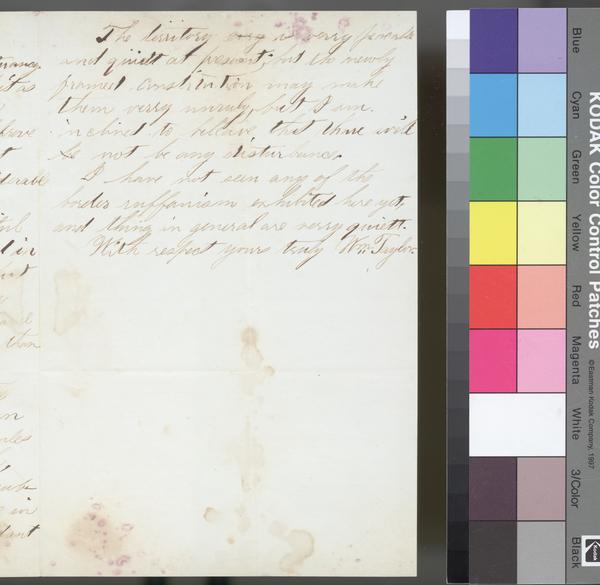 The territory is verry peaceable
and quiett at present, but the newly
framed constitution may make
them verry unruly, but I am
inclined to believe that there will
not be any disturbance.
I have not seen any of the
border ruffianism exhibited here yet,
and thing in general are verry quiett.
With respect yours truly Wm Taylor
it as
t
in
than
in
KODAK Color Control Patches
©Eastman Kodak Company, 1997
Blue
Cyan
Green
Yellow
Red
Magenta
White
3/Color
Black
Kodak